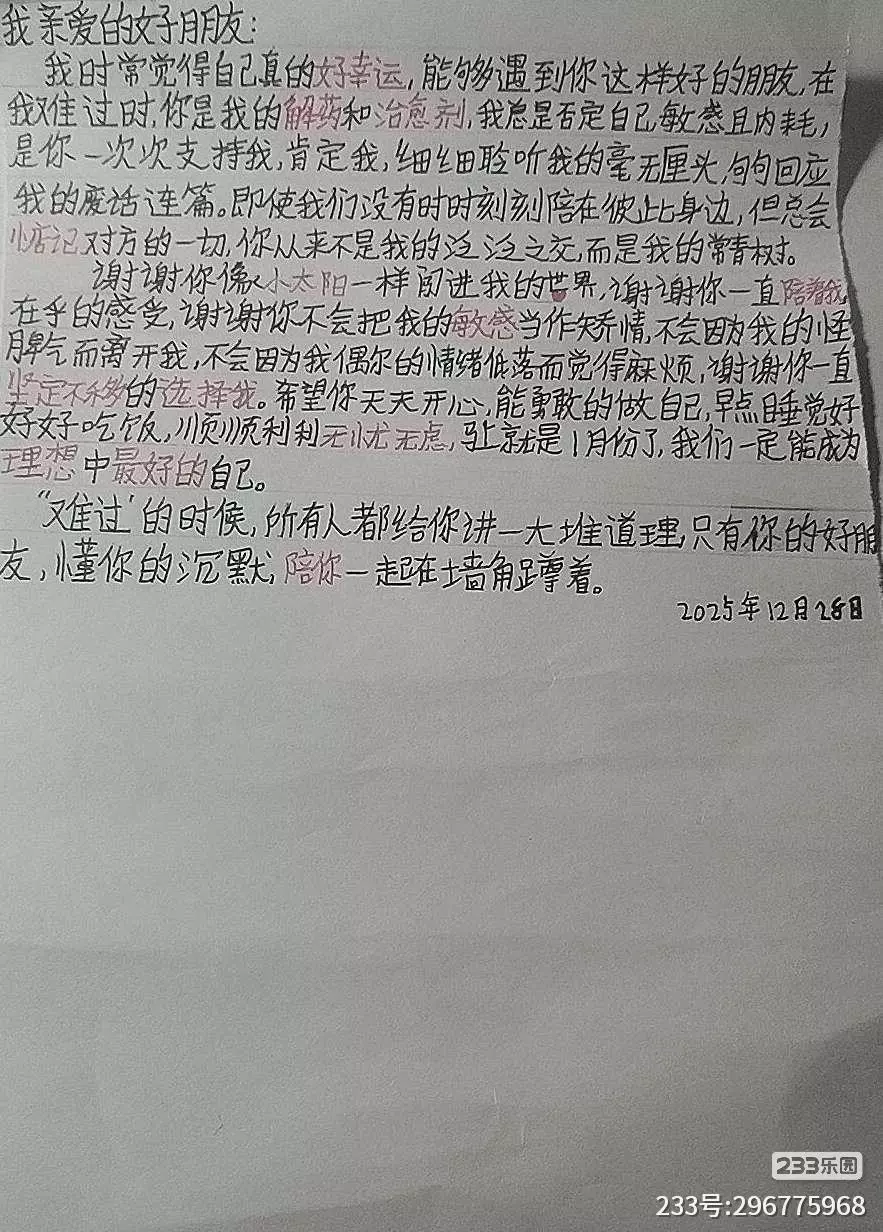 我亲爱的好朋友：
我时常觉得自己真的好幸运，能够遇到你这样好的朋友，在
我难过时，你是我的解药和治愈剂，我总是否定自己，敏感且内耗，
是你一次次支持我，肯定我，细细聆听我的毫无厘头，句句回应
我的废话连篇。即使我们没有时时刻刻陪在彼此身边，但总会
惦记对方的一切，你从来不是我的泛泛之交，而是我的常青树。
谢谢你像小太阳一样闯进我的世界，谢谢你一直陪着我
在乎的感受，谢谢你不会把我的敏感当作矫情，不会因为我的怪
脾气而离开我，不会因为我偶尔的情绪低落而觉得麻烦，谢谢你一直
坚定不移的选择我。希望你天天开心，能勇敢的做自己，早点睡觉好
好好吃饭，顺顺利利无忧无虑，马上就是1月份了，我们一定能成为
理想中最好的自己。
“难过”的时候，所有人都给你讲一大堆道理，只有你的好朋
友，懂你的沉默，陪你一起在墙角蹲着。
2025年12月28日
233乐园
233号:296775968